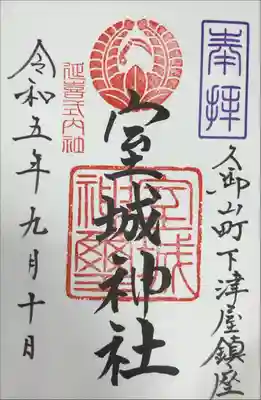 奉拝
久御山町下津屋鎮座
室城神社
延喜式内社
令和五年九月十日